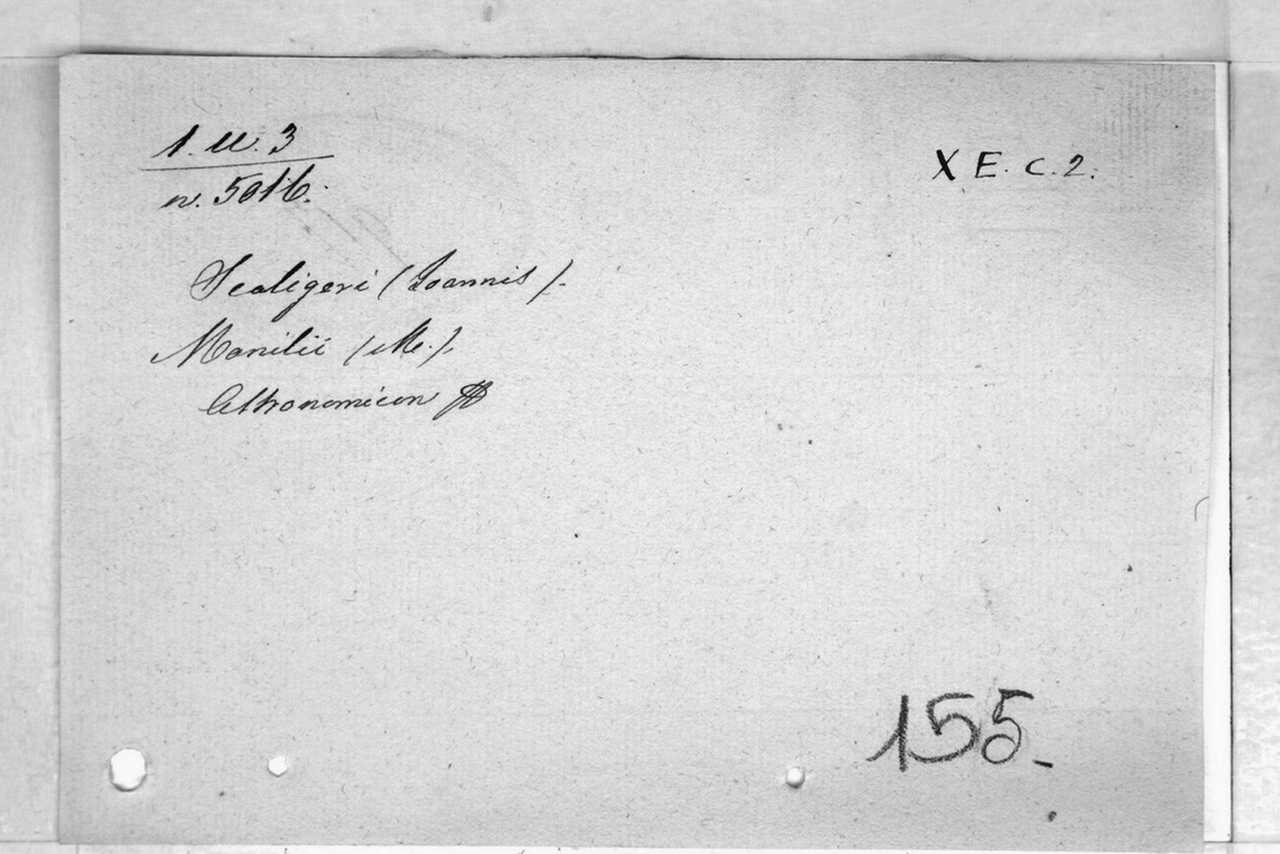 1. U. 3
X E. C. 2.
n. 5016.
Scaligeri (Joannis).
Manilii (M.).
Astronomicon
155.